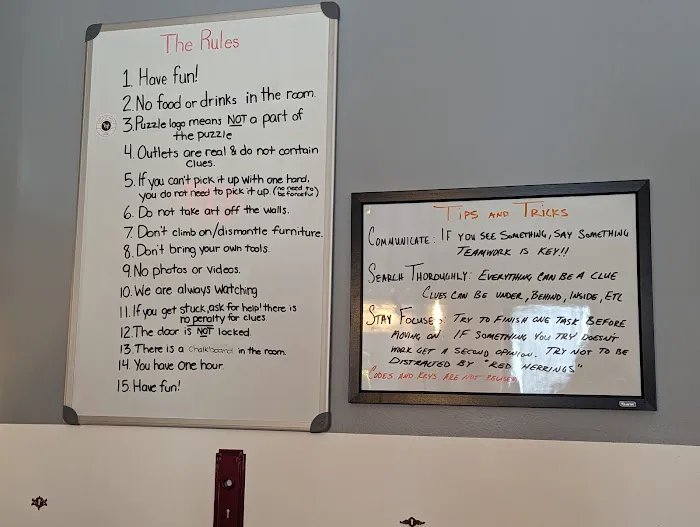 The Rules
1. Have fun!
2. No food or drinks in the room.
3. Puzzle logo means NOT a part of
the puzzle
4. Outlets are real & do not contain
clues.
5. If you can't pick it up with one hand,
you do not need to pick it up. (no need to be forceful)
6. Do not take art off the walls.
7. Don't climb on/dismantle furniture.
8. Don't bring your own tools.
9. No photos or videos.
10. We are always watching
11. If you get stuck, ask for help! there is
no penalty for clues
12. The door is NOT locked.
13. There is a Chalkboard in the room.
14. You have one hour.
15. Have fun!
Tips and Tricks
Communicate: If you see something, say something
Teamwork is key!!
Search Thoroughly: Everything can be a clue
Clues can be under, behind, inside, etc
Stay Focused: Try to finish one task before
moving on. If something you try doesn't
work get a second opinion. Try not to be
distracted by "red herrings"
Codes and keys are not reused